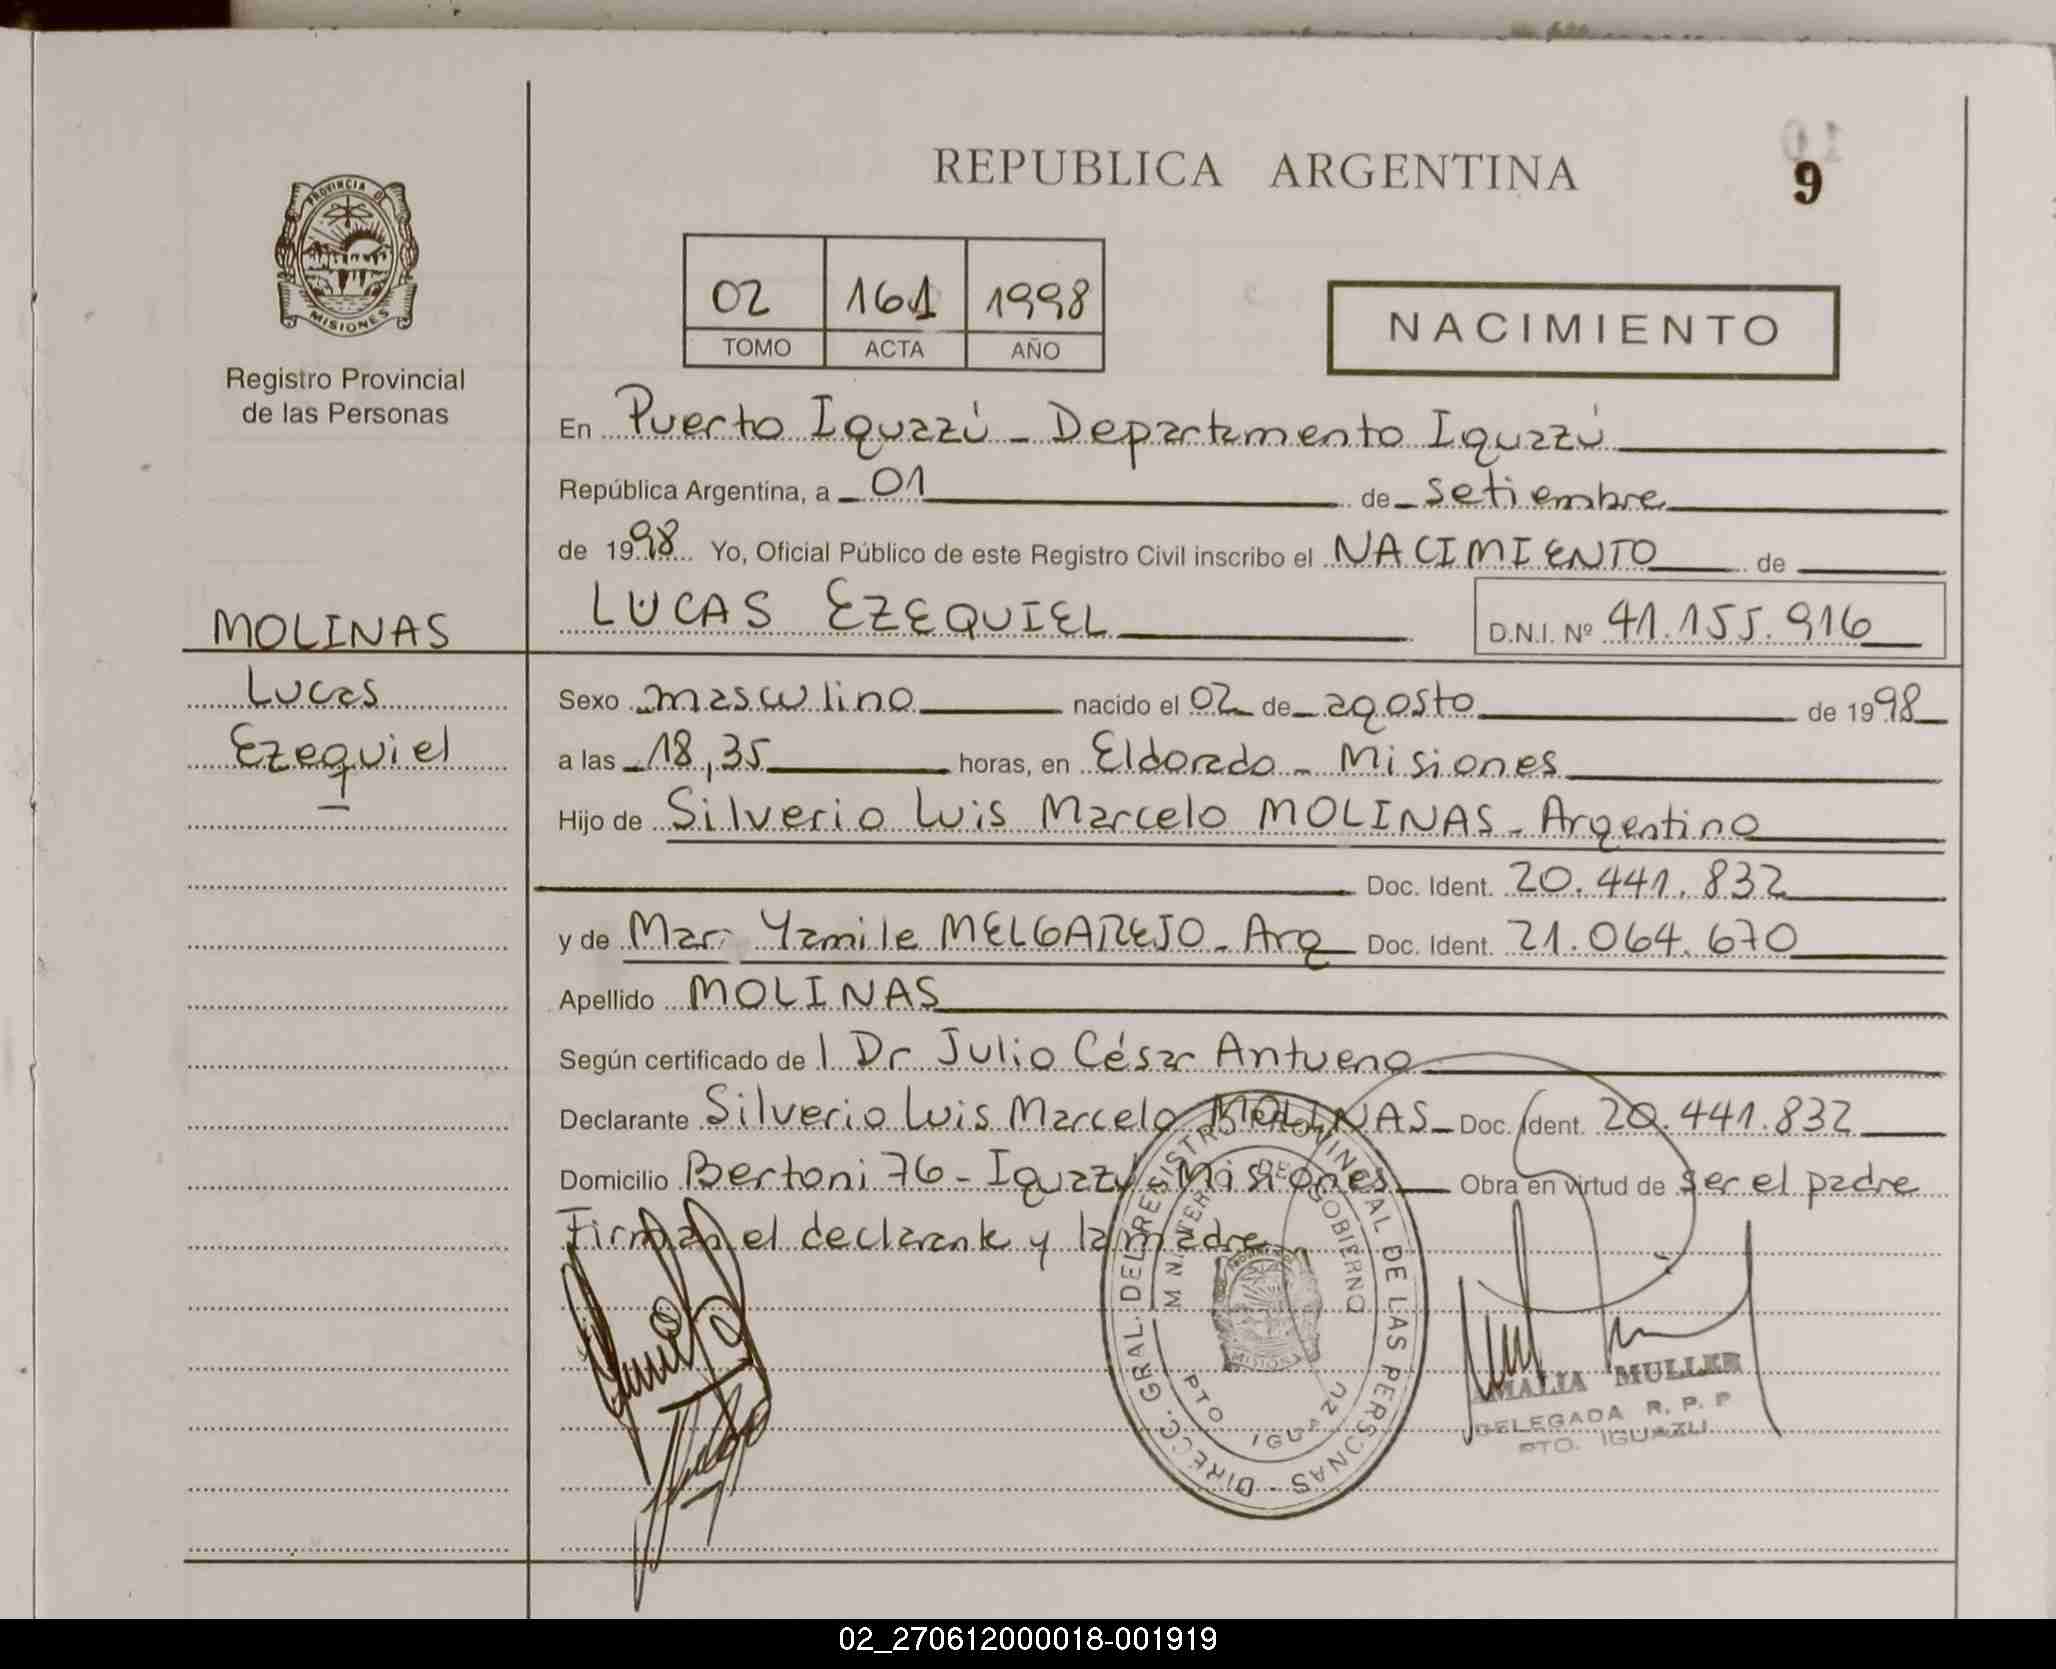 REPUBLICA ARGENTINA
9
PROVINCIA DE
MISIONES
Registro Provincial
de las Personas
02 161 1998
TOMO ACTA AÑO
NACIMIENTO
En Puerto Iguazú - Departamento Iguazú
República Argentina, a 01 de setiembre
de 1998 Yo, Oficial Público de este Registro Civil inscribo el NACIMIENTO de
LUCAS EZEQUIEL D.N.I. Nº 41.155.916
MOLINAS
Lucas
Ezequiel
Sexo masculino nacido el 02 de agosto de 1998
a las 18,35 horas, en Eldorado - Misiones
Hijo de Silverio Luis Marcelo MOLINAS - Argentino
Doc. Ident. 20.441.832
y de Mar Yamile MELGAREJO - Arg Doc. Ident. 21.064.670
Apellido MOLINAS
Según certificado de l Dr Julio César Antueno
Declarante Silverio Luis Marcelo MOLINAS - Doc. Ident. 20.441.832
Domicilio Bertoni 76 - Iguazú Misiones Obra en virtud de ser el padre
Firman el declarante y la madre
DIRECC. GRAL. DEL REGISTRO PROVINCIAL DE LAS PERSONAS -
MINISTERIO DE GOBIERNO
MISIONES
PTO IGUAZU
AMALIA MULLER
DELEGADA R. P. P
PTO. IGUAZU
02_270612000018-001919